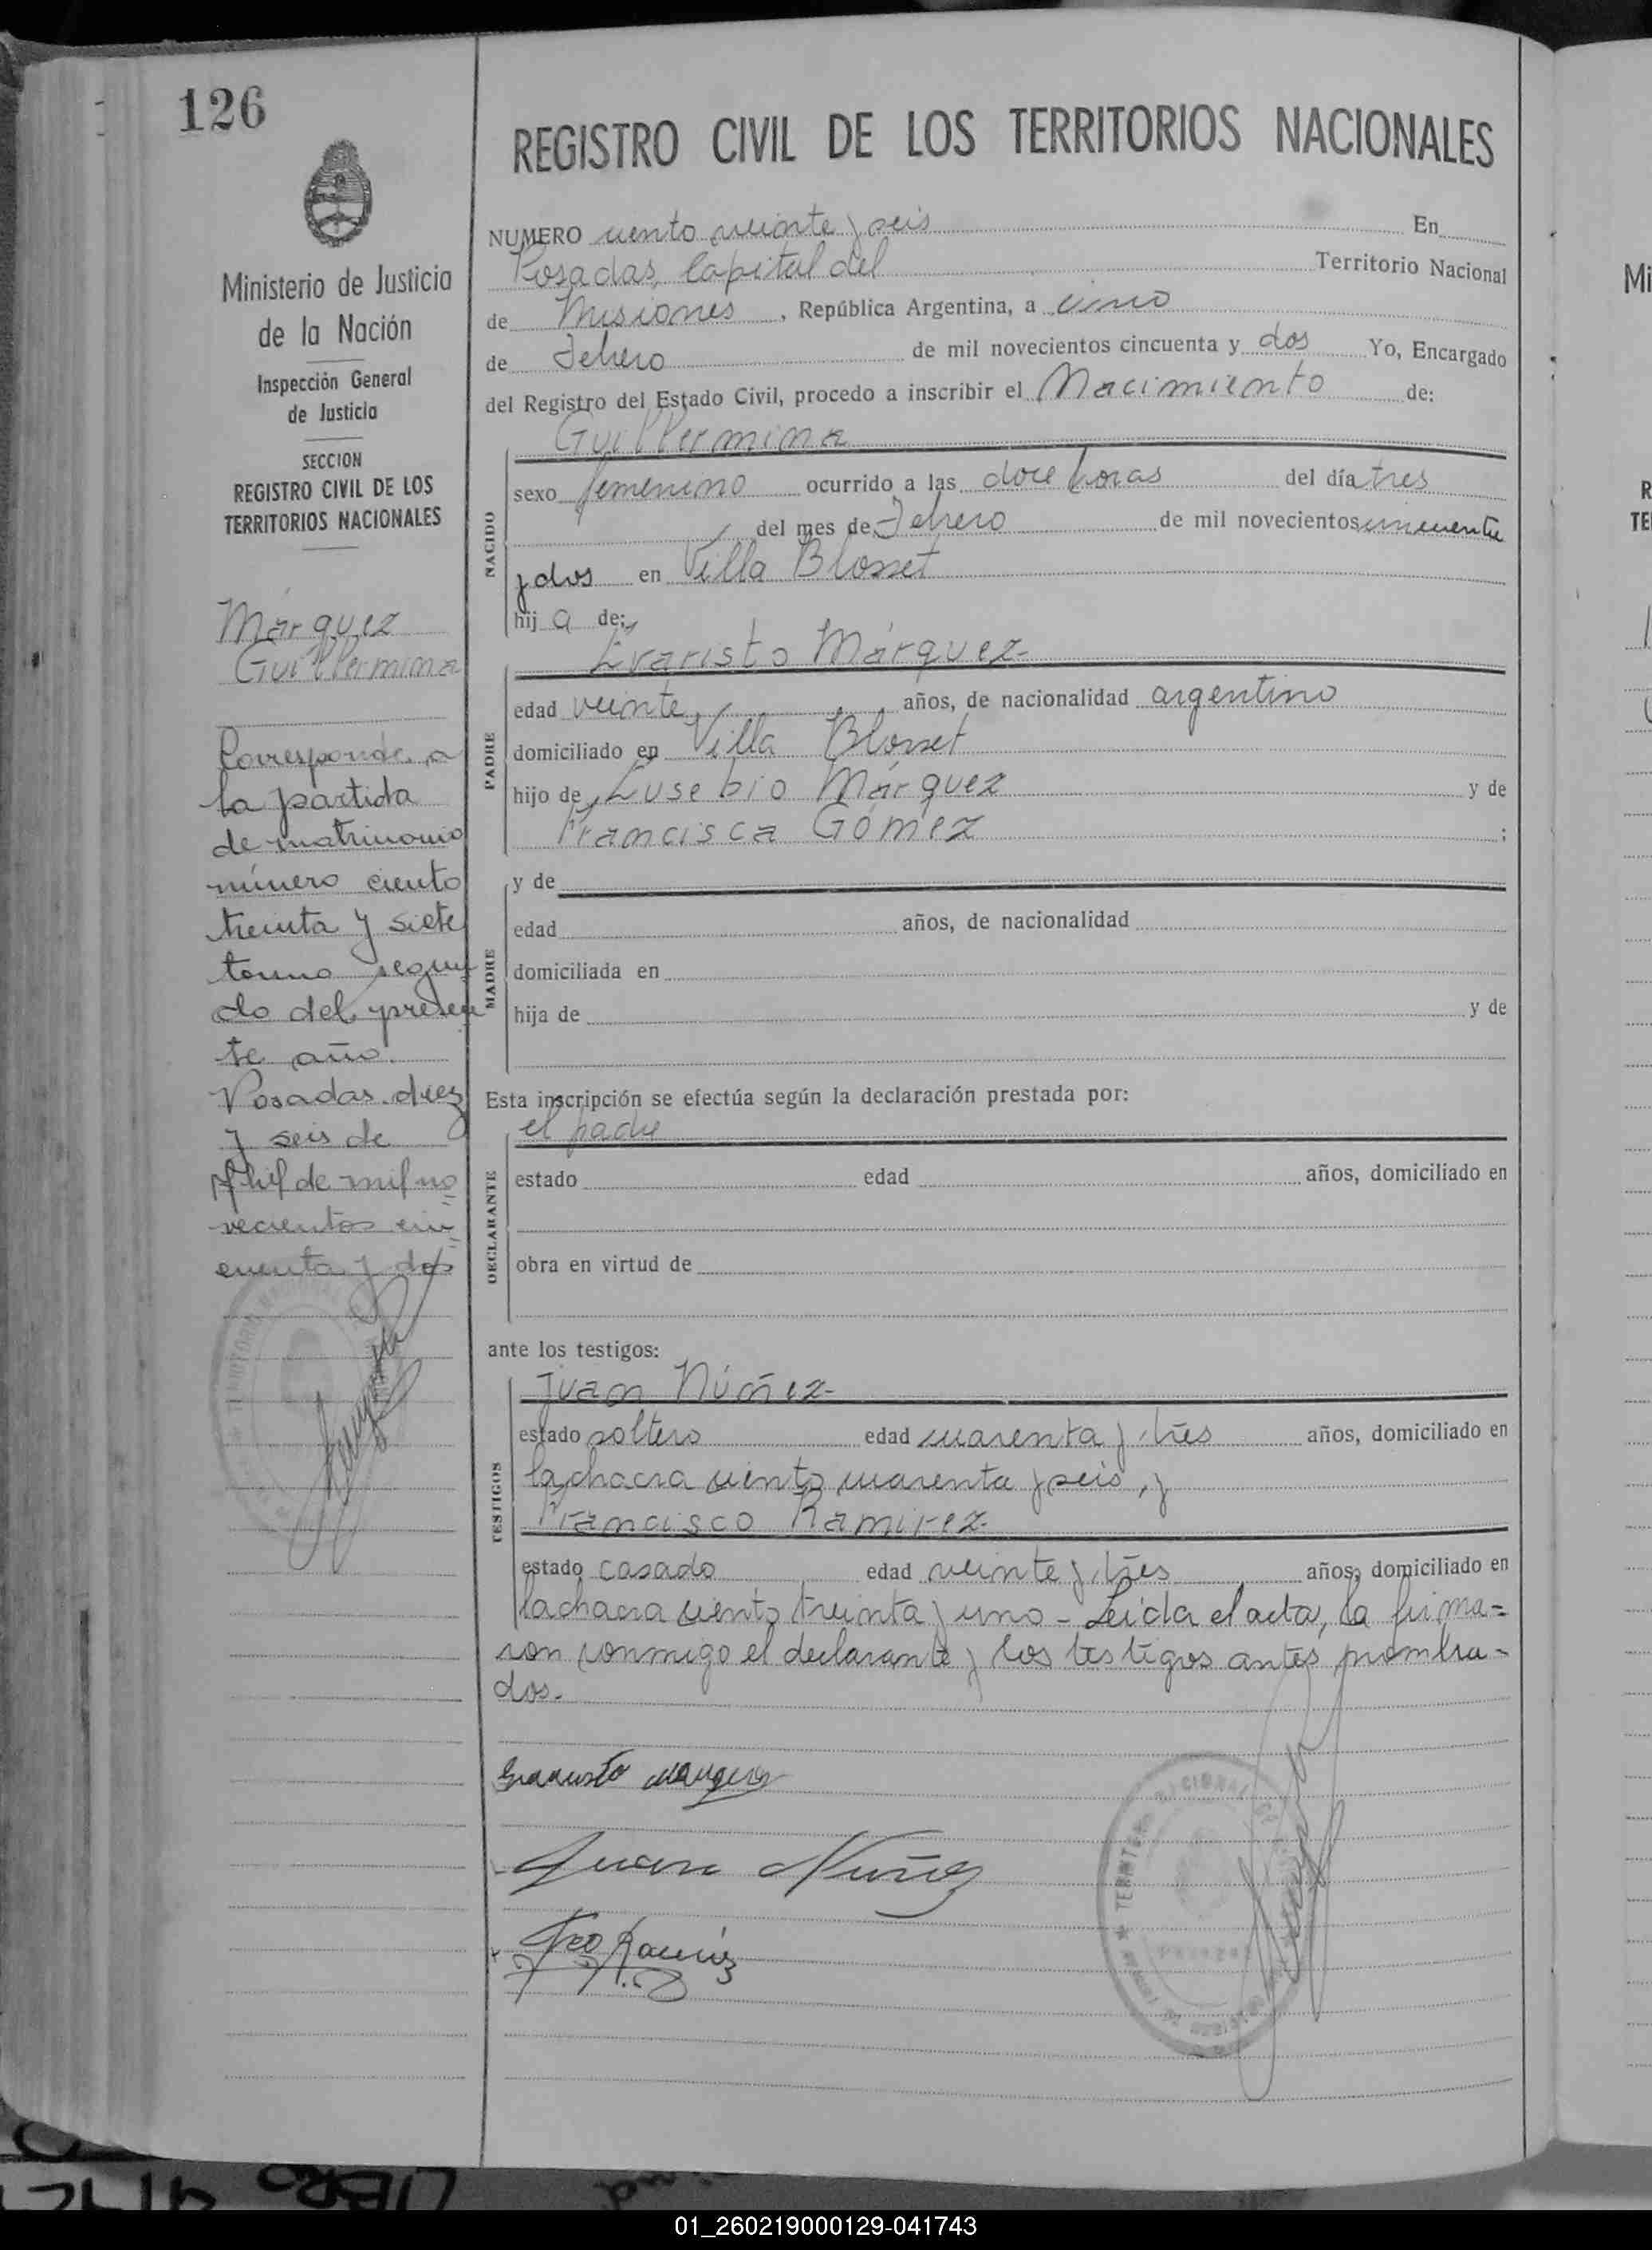 126
REGISTRO CIVIL DE LOS TERRITORIOS NACIONALES
Ministerio de Justicia
de la Nación
Inspección General
de Justicia
SECCION
REGISTRO CIVIL DE LOS
TERRITORIOS NACIONALES
Márquez
Guillermina
Corresponde a
la partida
de matrimonio
número ciento
treinta y siete
tomo segun
do del presen
te año.
Posadas diez
y seis de
Abril de mil no
vecientos cin
cuenta y dos
NUMERO ciento veinte y seis En
Posadas, Capital del Territorio Nacional
de Misiones, República Argentina, a cinco
de Febrero de mil novecientos cincuenta y dos Yo, Encargado
del Registro del Estado Civil, procedo a inscribir el Nacimiento de:
Guillermina
NACIDO
sexo femenino ocurrido a las doce horas del día tres
del mes de Febrero de mil novecientos cincuenta
y dos en Villa Blosset
hij a de:
Evaristo Márquez-
PADRE
edad veinte años, de nacionalidad argentino
domiciliado en Villa Blosset
hijo de Eusebio Márquez y de
Francisca Gómez ;
MADRE
y de
edad años, de nacionalidad
domiciliada en
hija de y de
Esta inscripción se efectúa según la declaración prestada por:
el padre
DECLARANTE
estado edad años, domiciliado en
obra en virtud de
ante los testigos:
Juan Núñez-
TESTIGOS
estado soltero edad cuarenta y tres años, domiciliado en
la chacra ciento cuarenta y seis, y
Francisco Ramirez-
estado casado edad veinte y tres años, domiciliado en
la chacra ciento treinta y uno - Leída el acta, la firma=
ron conmigo el declarante y los testigos antes nombra-
dos.-
Evaristo Marquez
Juan Nuñez
Fco Ramirez
TERRITORIO NACIONAL
LIBRO
01_260219000129-041743